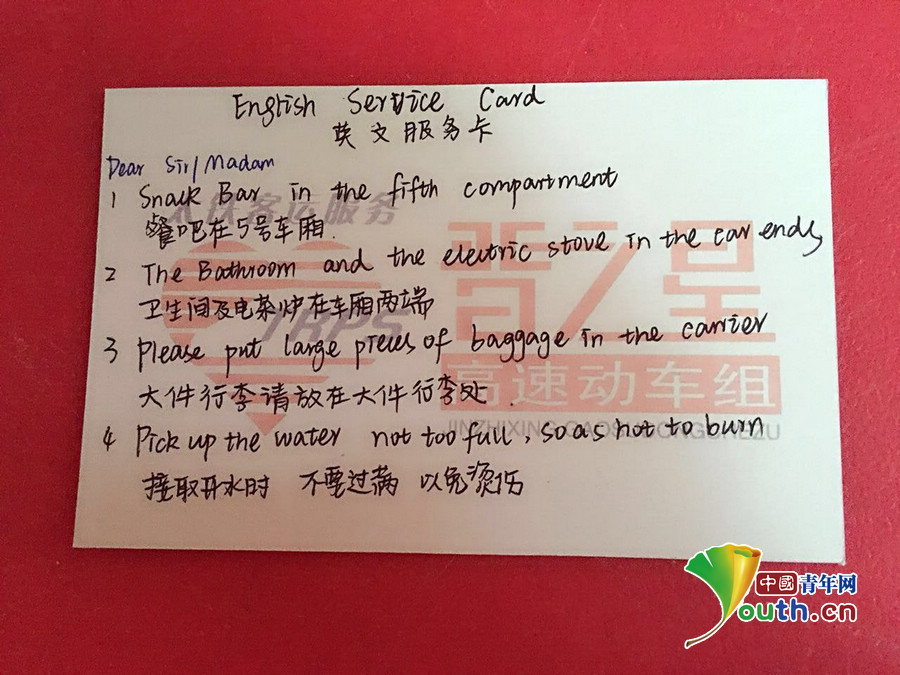 English Service Card
英文服务卡
Dear Sir/Madam
1 Snack Bar in the fifth compartment
太铁客运服务
餐吧在5号车厢.
2 The Bathroom and the electric stove in the car ends
卫生间及电茶炉在车厢两端
TRPS
晋之星
3 please put large pieces of baggage in the carrier
大件行李请放在大件行李处.
高速动车组
JINZHIXING GAOSUDONGCHEZU
4 Pick up the water not too full, so as not to burn
接取开水时 不要过满 以免烫伤
中國青年网
Youth.cn